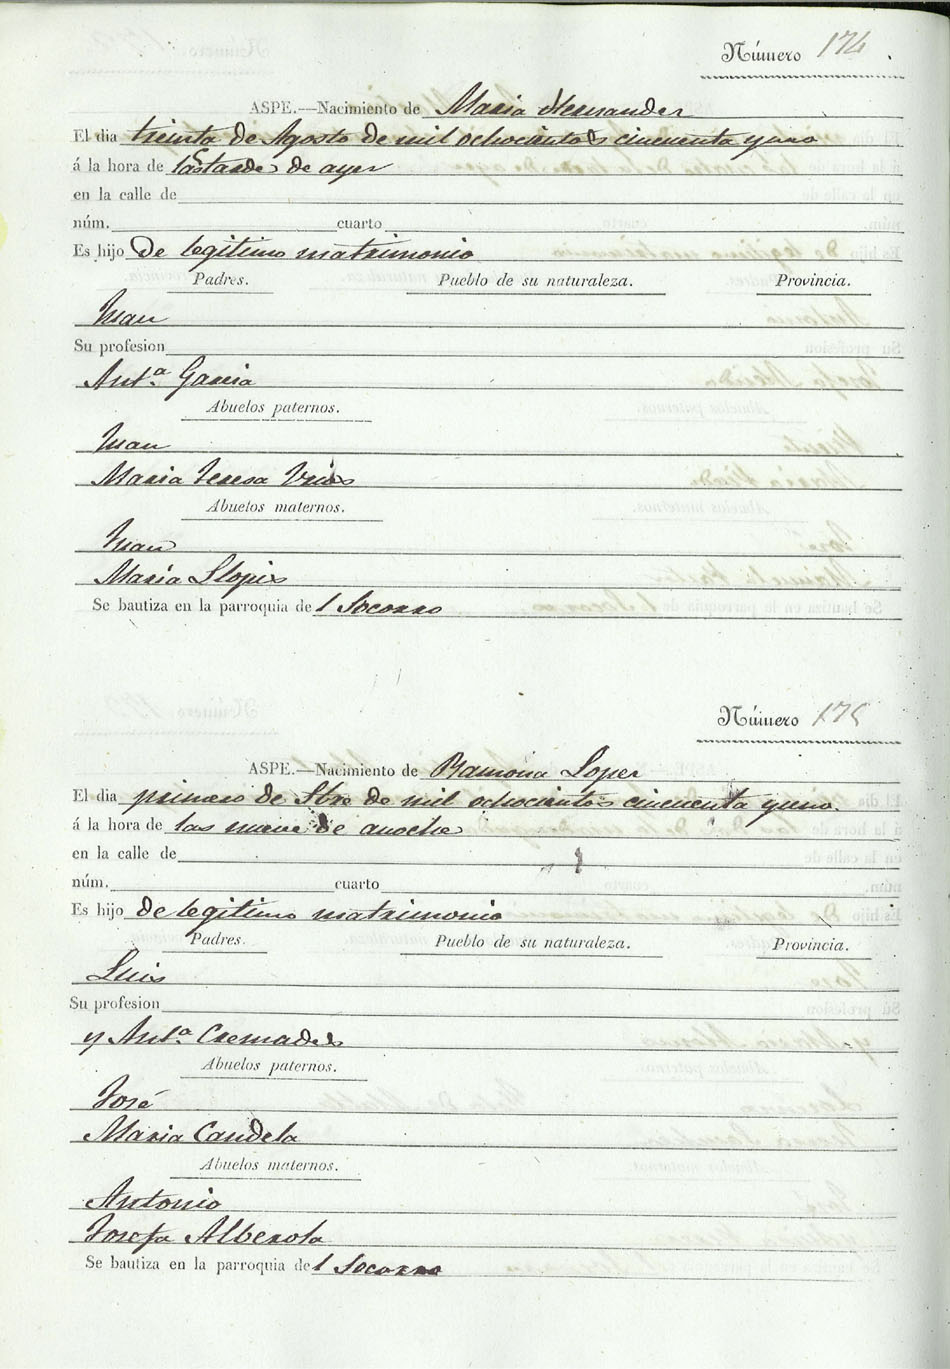 Número 174
ASPE.—Nacimiento de Maria Hernandez
El dia treinta de Agosto de mil ochocientos cincuenta y uno
á la hora de las tarde de ayer
en la calle de
núm. cuarto
Es hijo De legitimo matrimonio
Padres. Pueblo de su naturaleza. Provincia.
Juan
Su profesion
Antª Garcia
Abuelos paternos.
Juan
Maria Teresa
Abuelos maternos.
Juan
Maria Llopis
Se bautiza en la parroquia del Socorro
Número 175
ASPE.—Nacimiento de Ramona Lopez
El dia primero de Sbre de mil ochocientos cincuenta y uno
á la hora de las nueve de anoche
en la calle de
núm. cuarto
Es hijo de legitimo matrimonio
Padres. Pueblo de su naturaleza. Provincia.
Luis
Su profesion
y Antª Cremades
Abuelos paternos.
José
Maria Candela
Abuelos maternos.
Antonio
Josefa Alberola
Se bautiza en la parroquia del Socorro